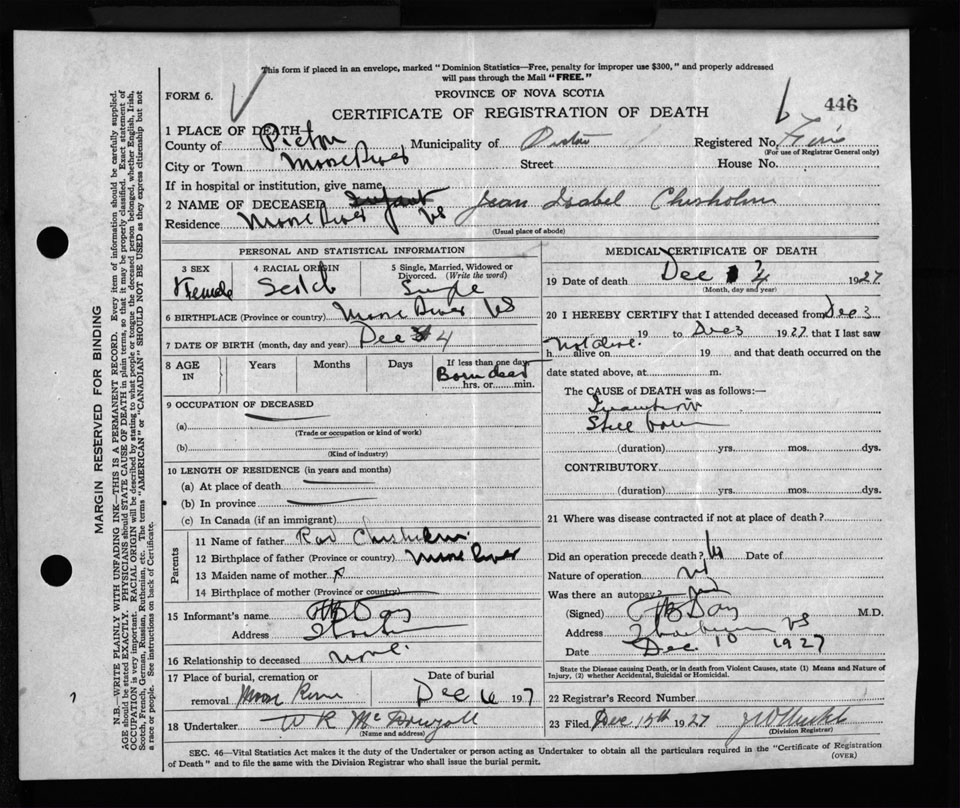 This form if placed in an envelope, marked "Dominion Statistics—Free, penalty for improper use $300," and properly addressed
will pass through the Mail "FREE."
FORM 6.
PROVINCE OF NOVA SCOTIA
446
CERTIFICATE OF REGISTRATION OF DEATH
1 PLACE OF DEATH—
County of Pictou Municipality of Pictou Registered No.
(For use of Registrar General only)
City or Town Moose River Street House No.
If in hospital or institution, give name
2 NAME OF DECEASED Infant Jean Isabel Chisholm
Residence Moose River NS
(Usual place of abode)
MARGIN RESERVED FOR BINDING
N.B.—WRITE PLAINLY WITH UNFADING INK—THIS IS A PERMANENT RECORD. Every item of information should be carefully supplied.
AGE should be stated EXACTLY. PHYSICIANS should STATE CAUSE OF DEATH in plain terms, so that it may be properly classified. Exact statement of
OCCUPATION is very important. RACIAL ORIGIN will be described by stating to what people or tongue the deceased person belonged, whether English, Irish,
Scotch, French, German, Russian, Ruthenian, etc. The terms "AMERICAN" or "CANADIAN" SHOULD NOT BE USED as they express citizenship but not
a race or people. See instructions on back of Certificate.
PERSONAL AND STATISTICAL INFORMATION
3 SEX
Female
4 RACIAL ORIGIN
Scotch
5 Single, Married, Widowed or
Divorced. (Write the word)
Single
6 BIRTHPLACE (Province or country) Moose River NS
7 DATE OF BIRTH (month, day and year) Dec 4
8 AGE
IN
Years
Months
Days
If less than one day
Born dead
hrs. or min.
9 OCCUPATION OF DECEASED
(a)
(Trade or occupation or kind of work)
(b)
(Kind of industry)
10 LENGTH OF RESIDENCE (in years and months)
(a) At place of death
(b) In province
(c) In Canada (if an immigrant)
Parents
11 Name of father Chisholm
12 Birthplace of father (Province or country) Moose River
13 Maiden name of mother
14 Birthplace of mother (Province or country)
15 Informant's name Day
Address
16 Relationship to deceased none.
17 Place of burial, cremation or
removal Moose River
Date of burial
Dec 6 1927
18 Undertaker W R McDougall
(Name and address)
MEDICAL CERTIFICATE OF DEATH
19 Date of death Dec 4 1927
(Month, day and year)
20 I HEREBY CERTIFY that I attended deceased from Dec 3
19 to Dec 3 1927 that I last saw
h not alive. alive on 19 and that death occurred on the
date stated above, at m.
The CAUSE OF DEATH was as follows:—
Still born
(duration) yrs. mos. dys.
CONTRIBUTORY
(duration) yrs. mos. dys.
21 Where was disease contracted if not at place of death?
Did an operation precede death? Date of
Nature of operation
Was there an autopsy?
(Signed) Day M.D.
Address NS
Date Dec. 10 1927
State the Disease causing Death, or in death from Violent Causes, state (1) Means and Nature of
Injury, (2) whether Accidental, Suicidal or Homicidal.
22 Registrar's Record Number
23 Filed Dec. 15th 1927
(Division Registrar)
SEC. 46—Vital Statistics Act makes it the duty of the Undertaker or person acting as Undertaker to obtain all the particulars required in the "Certificate of Registration
of Death" and to file the same with the Division Registrar who shall issue the burial permit.
(OVER)